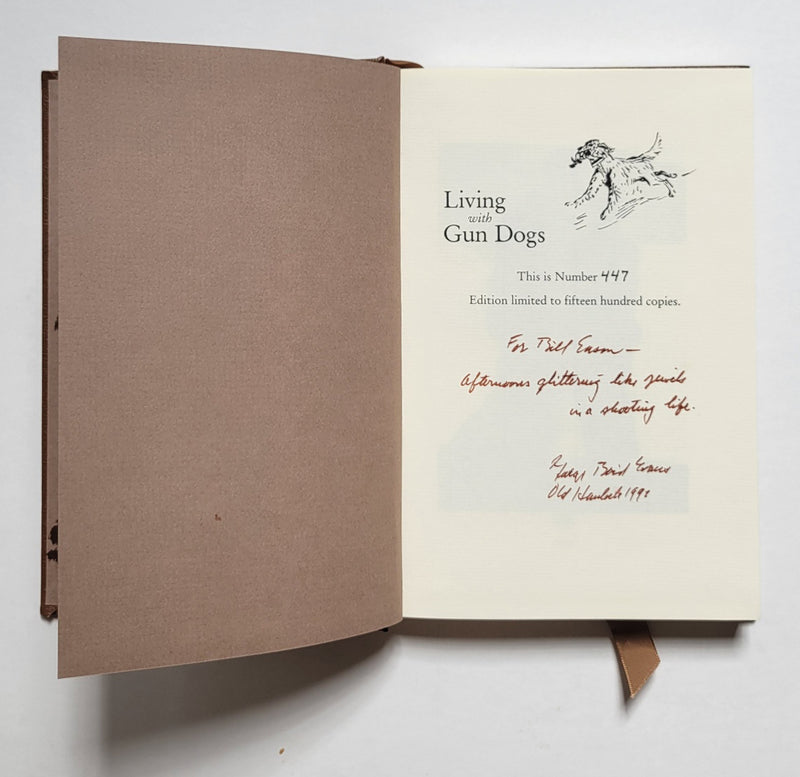 Living
with
Gun Dogs
This is Number 447
Edition limited to fifteen hundred copies.
For Bill Eason —
Afternoons glittering like jewels
in a shooting life.
George Bird Evans
Old Hemlock 1992